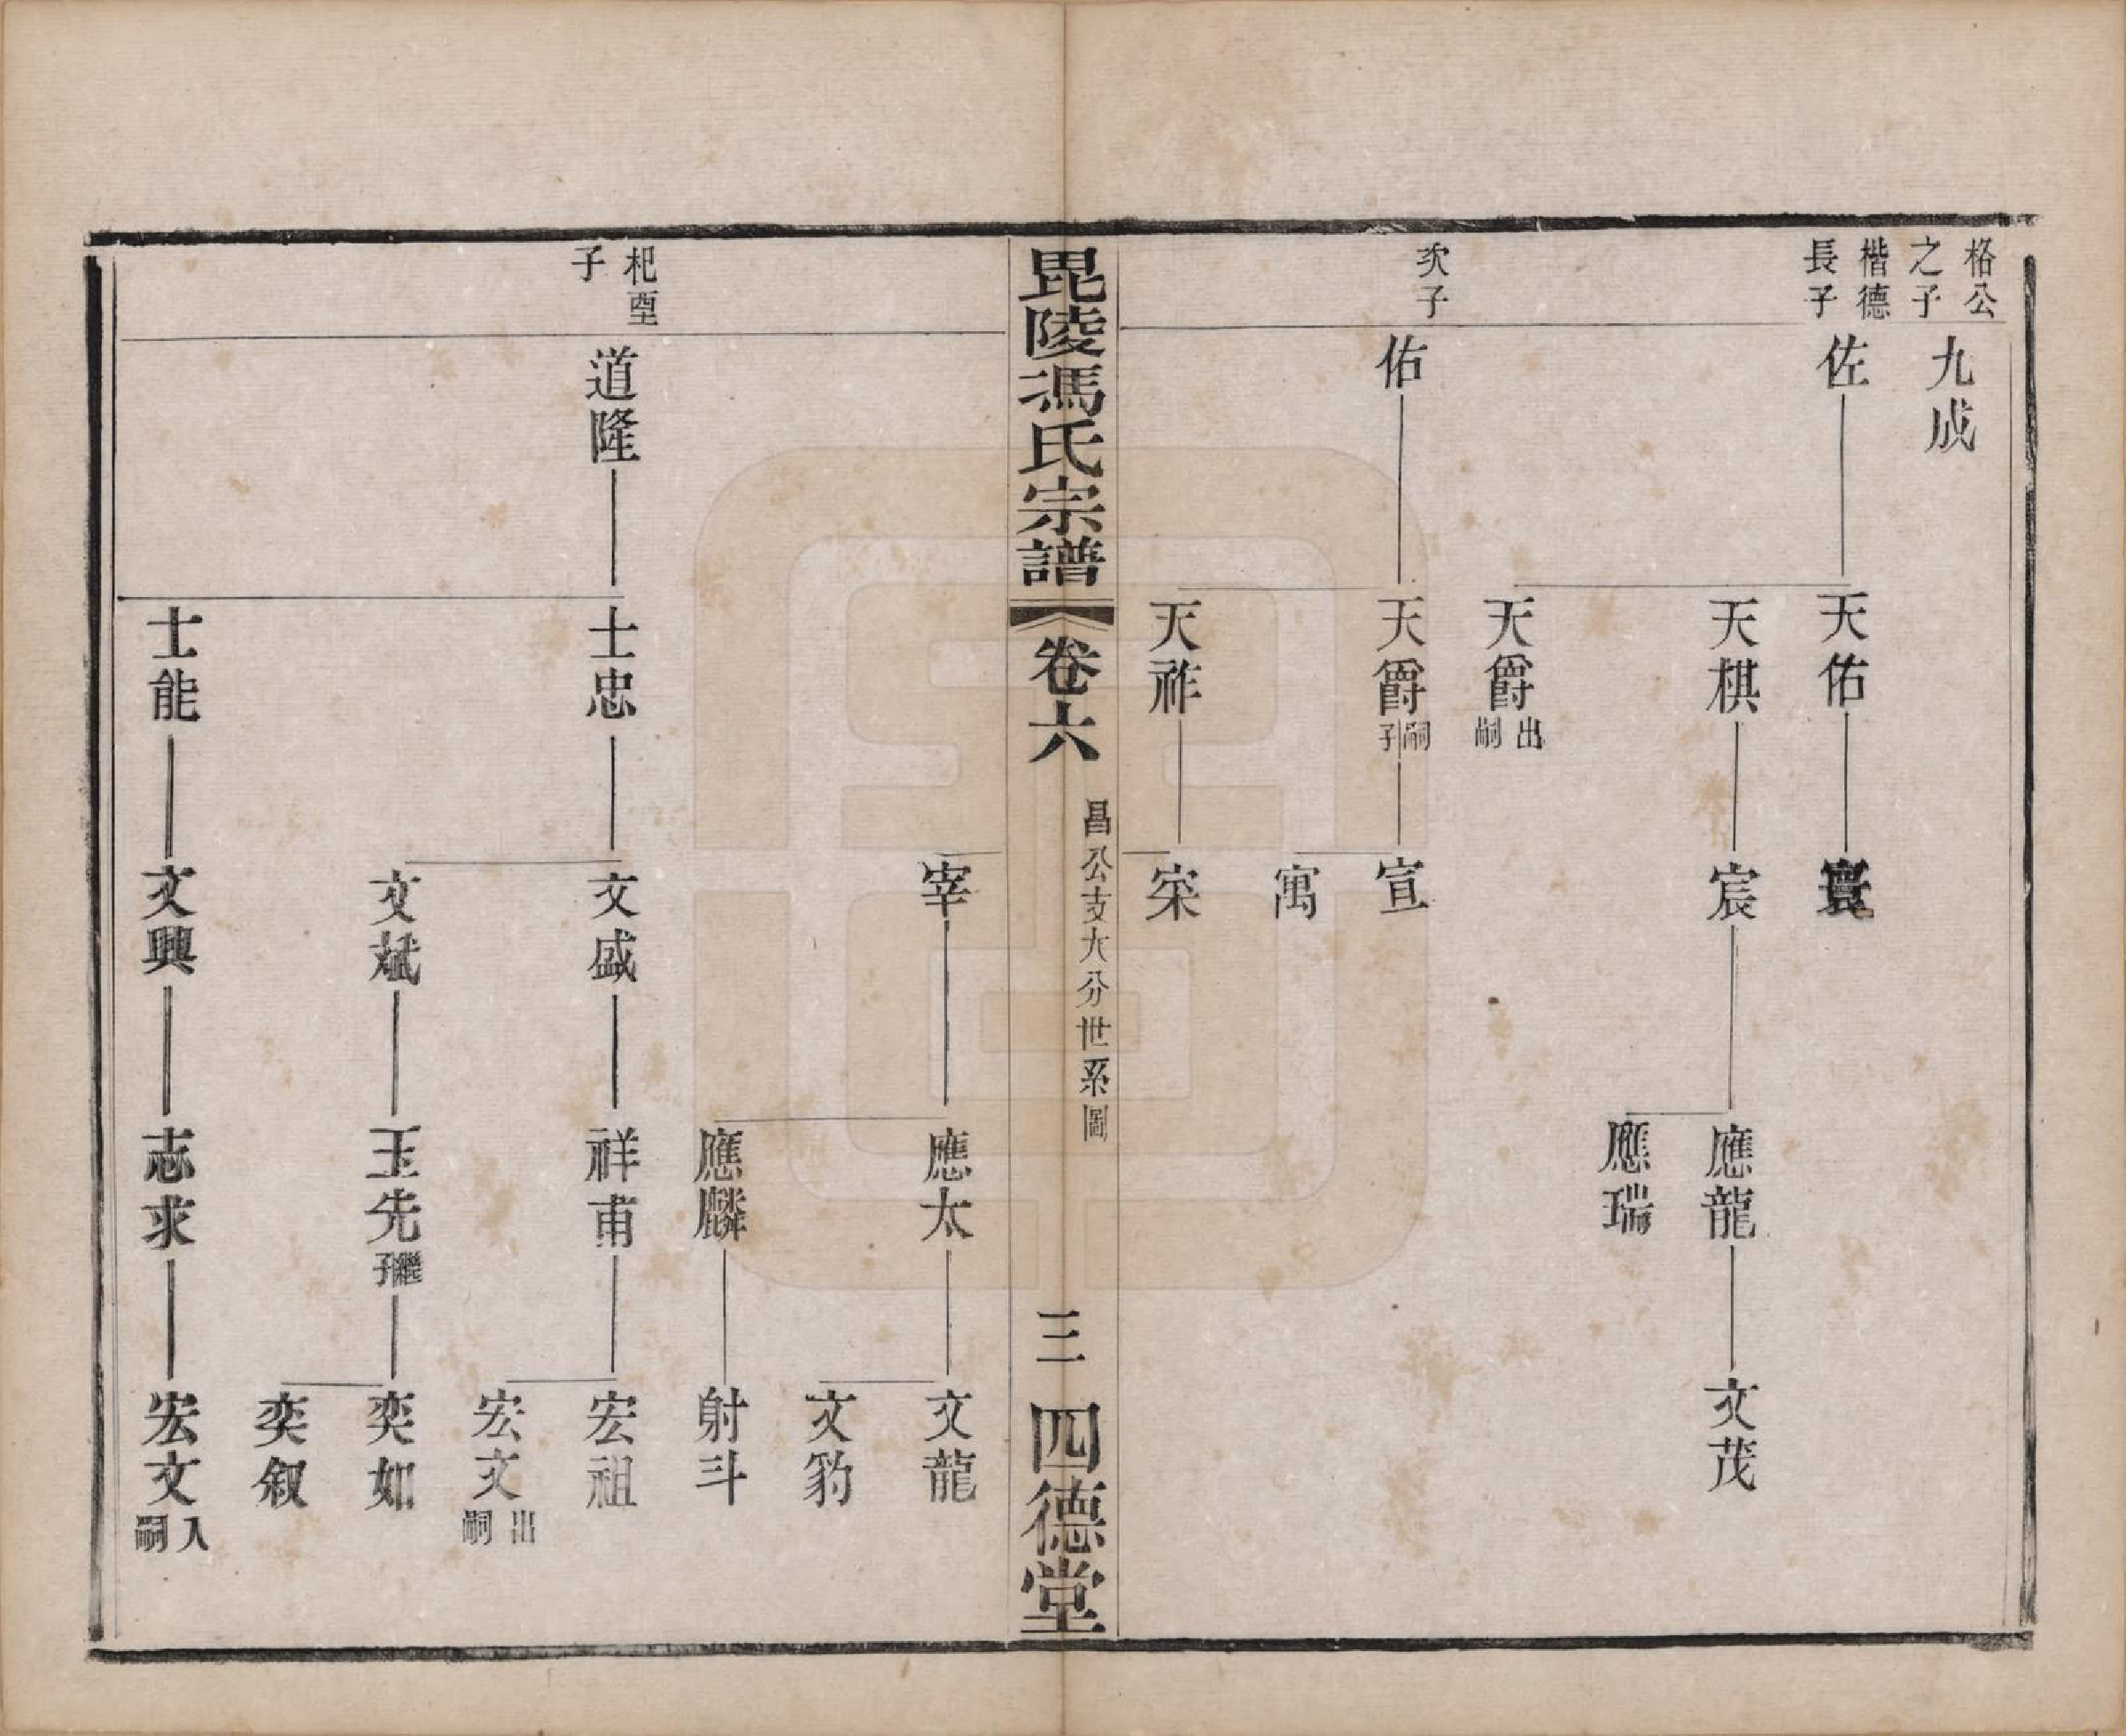 格公
之子
九成
楷德
長子
佐
天佑
寰
天棋
宸
應龍
文茂
應瑞
天爵
出嗣
次子
佑
天爵
嗣子
宣
寓
天祚
寀
毘陵馮氏宗譜
卷六
昌公支大分世系圖
三
四德堂
宰
應太
文龍
文豹
應麟
射斗
杞
子
道隆
士忠
文盛
祥甫
宏祖
宏文
出嗣
文斌
玉先
繼子
奕如
奕叙
士能
文興
志求
宏文
入嗣